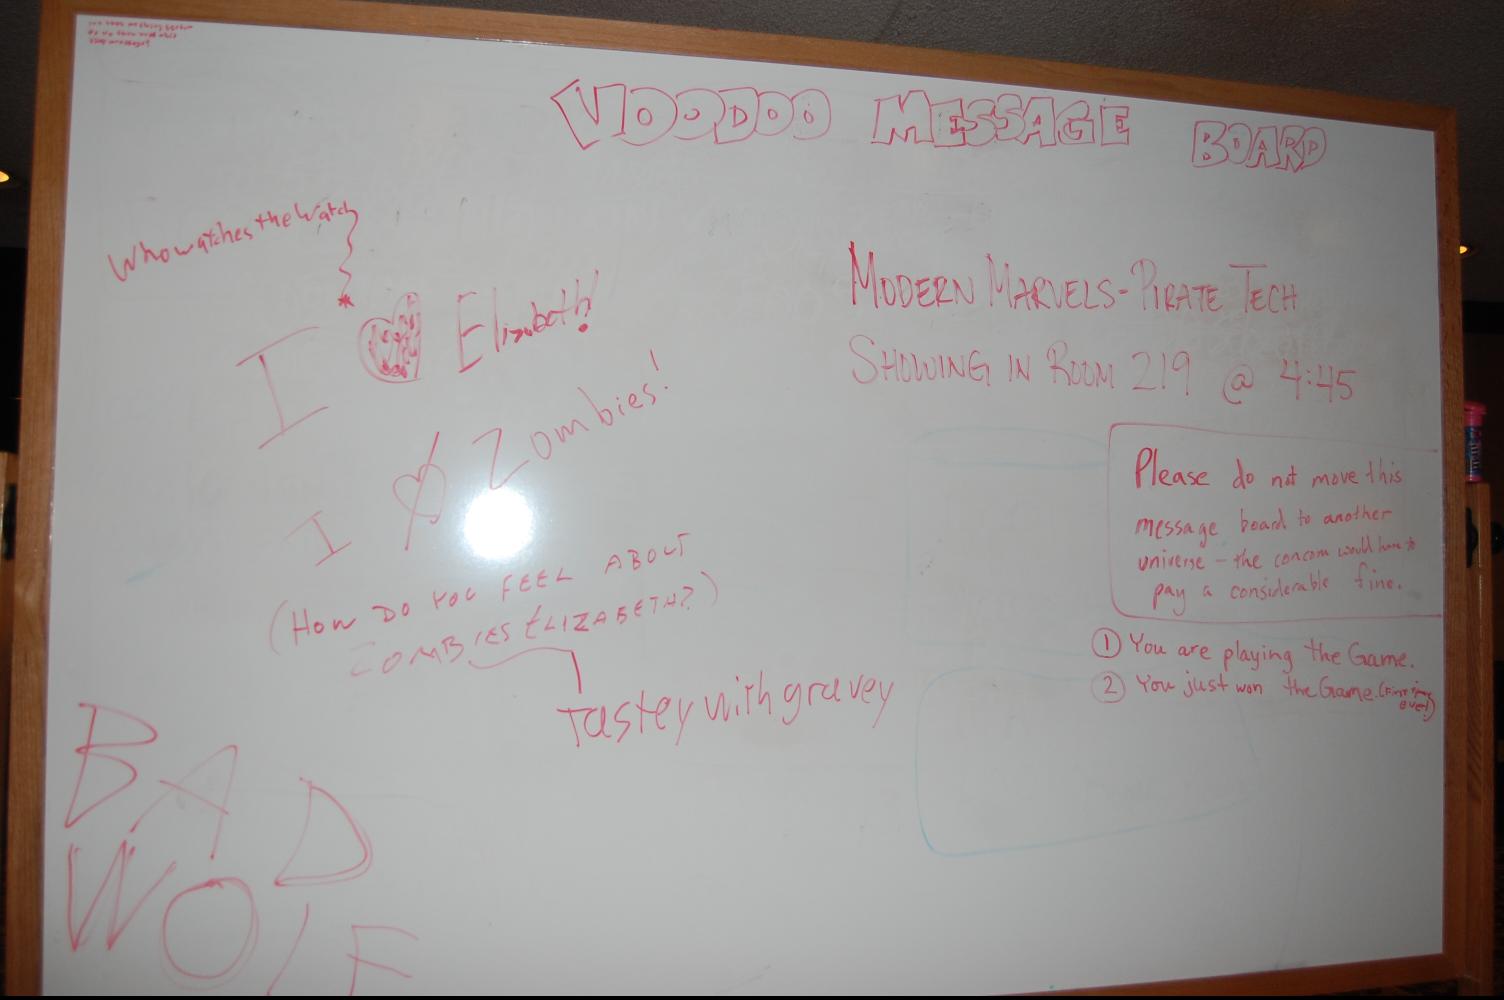 VOODOO MESSAGE BOARD
Who watches the Watch
I Elizabeth!
I Zombies!
(HOW DO YOU FEEL ABOUT
ZOMBIES ELIZABETH?)
Tastey with gravey
BAD
WOLF
MODERN MARVELS-PIRATE TECH
SHOWING IN ROOM 219 @ 4:45
Please do not move this
message board to another
universe - the concom would have to
pay a considerable fine.
1 You are playing the Game.
2 You just won the Game. (First time
ever!)